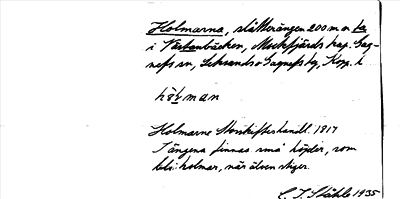 Holmarna, slåtterängen 200 m n ta
i Västanbäcken, Mockfjärds kap. Gag-
nefs sn, Leksands o Gagnefs tg, Kopp. l.
hó̀lman
Holmarne Storskifteshandl. 1817
I ängena finnas små höjder, som
bli holmar, när älven stiger.
C. I. Ståhle 1935